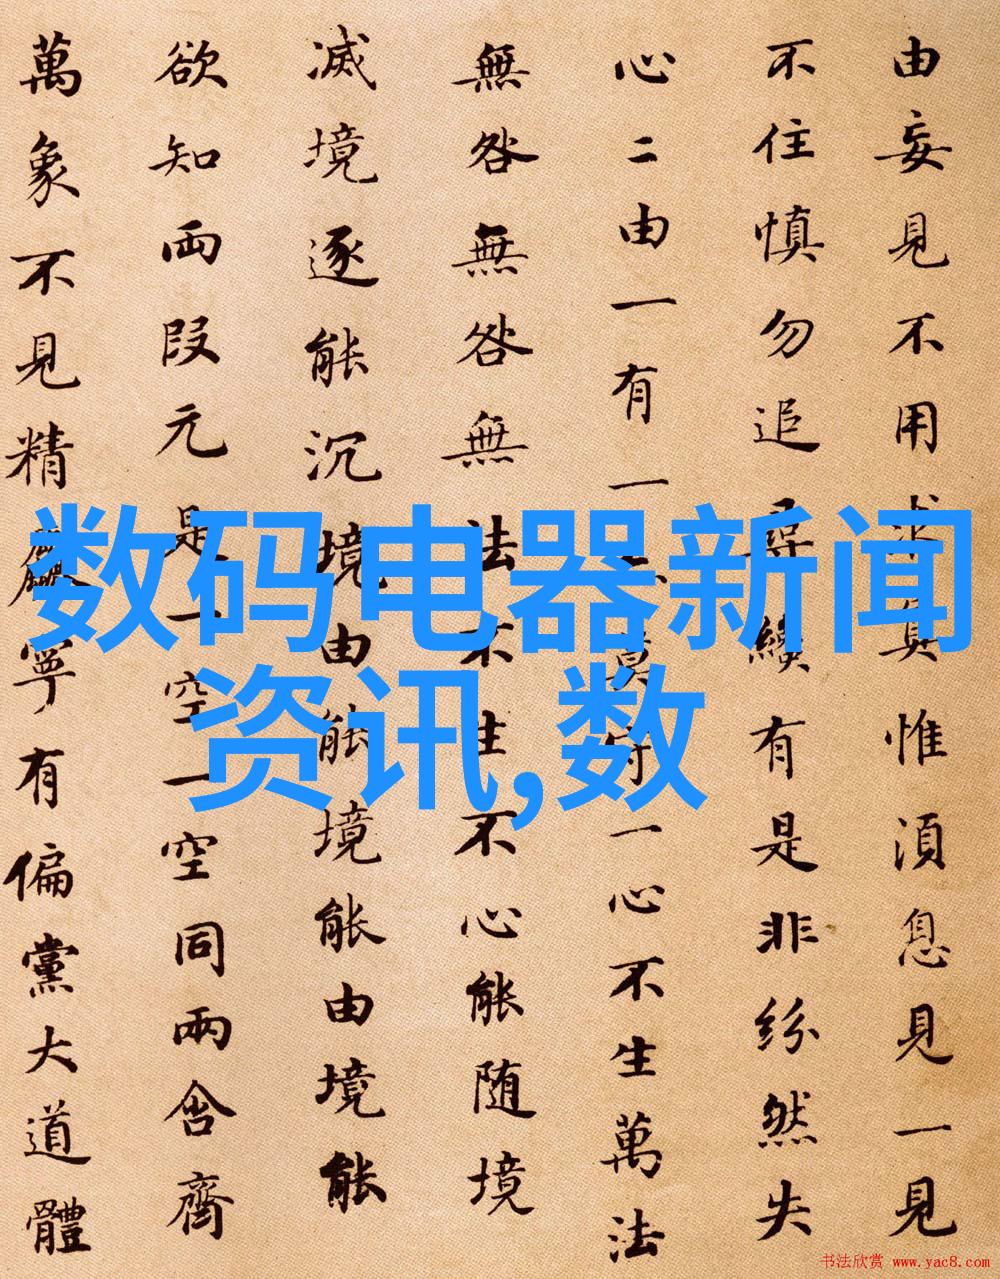 由妄見不用求真惟須息見一見
不住慎勿追尋纔有是非紛然失
心二由一有一亦莫守一心不生萬法
無咎無咎無法不生不心能随境
滅境逐能沉境由能境能由境能
欲知兩段元是一空一空同兩含齊
萬象不見精麁寧有偏黨大道體
数码电器新闻
资讯,数
书法欣赏 www.yac8.com